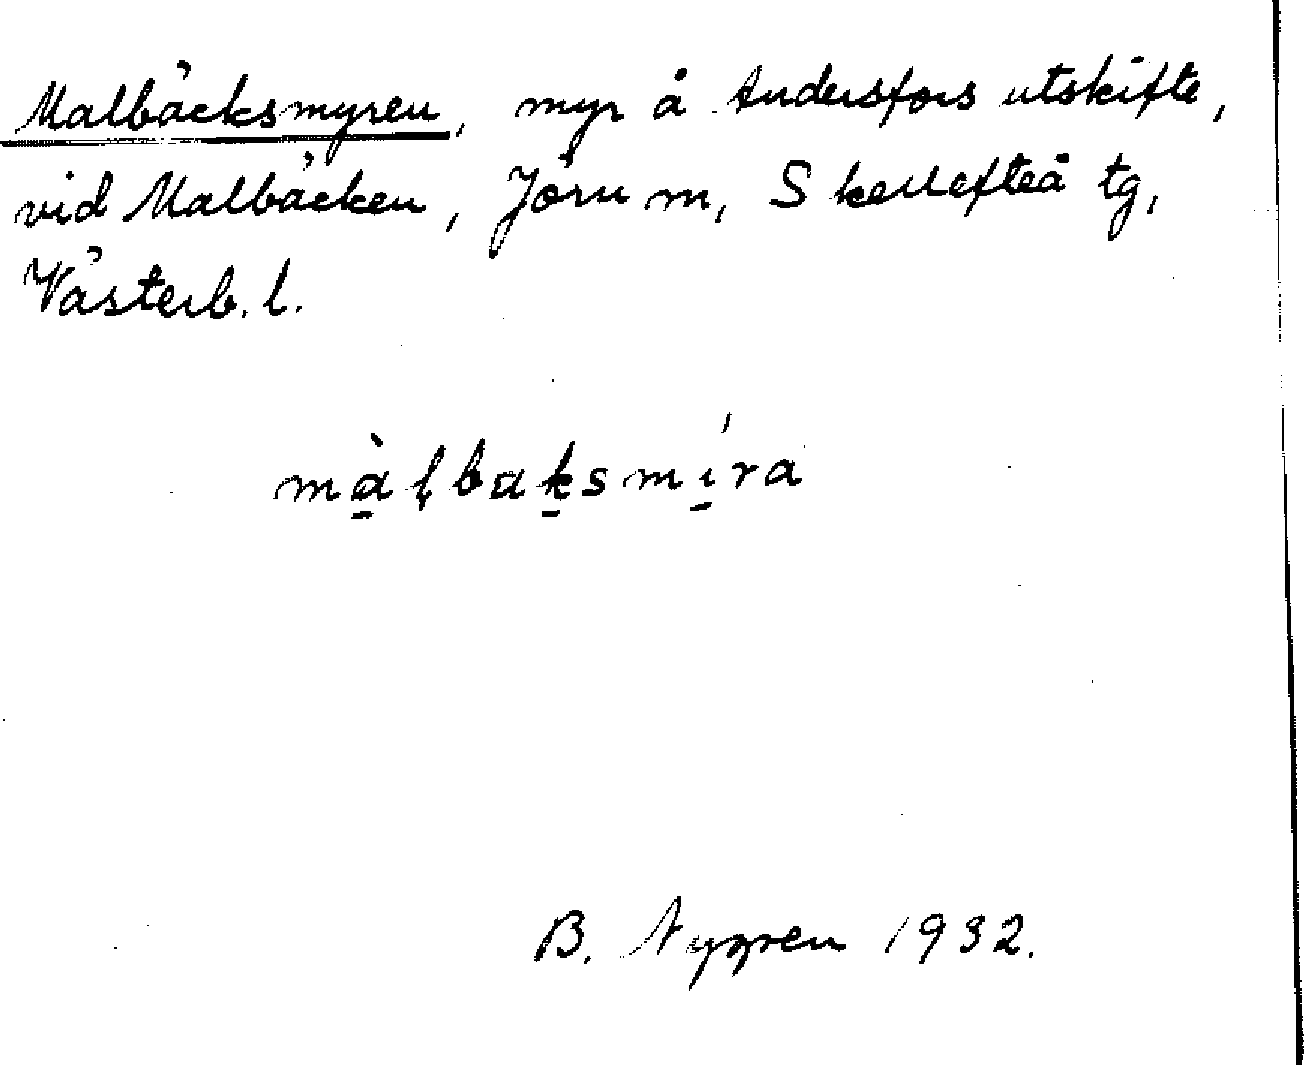 Malbäcksmyren, myr å Andersfors utskifte,
vid Malbäcken, Jörn m, Skellefteå tg,
Västerb. l.
màḷbaksmíra
B. Nygren 1932.